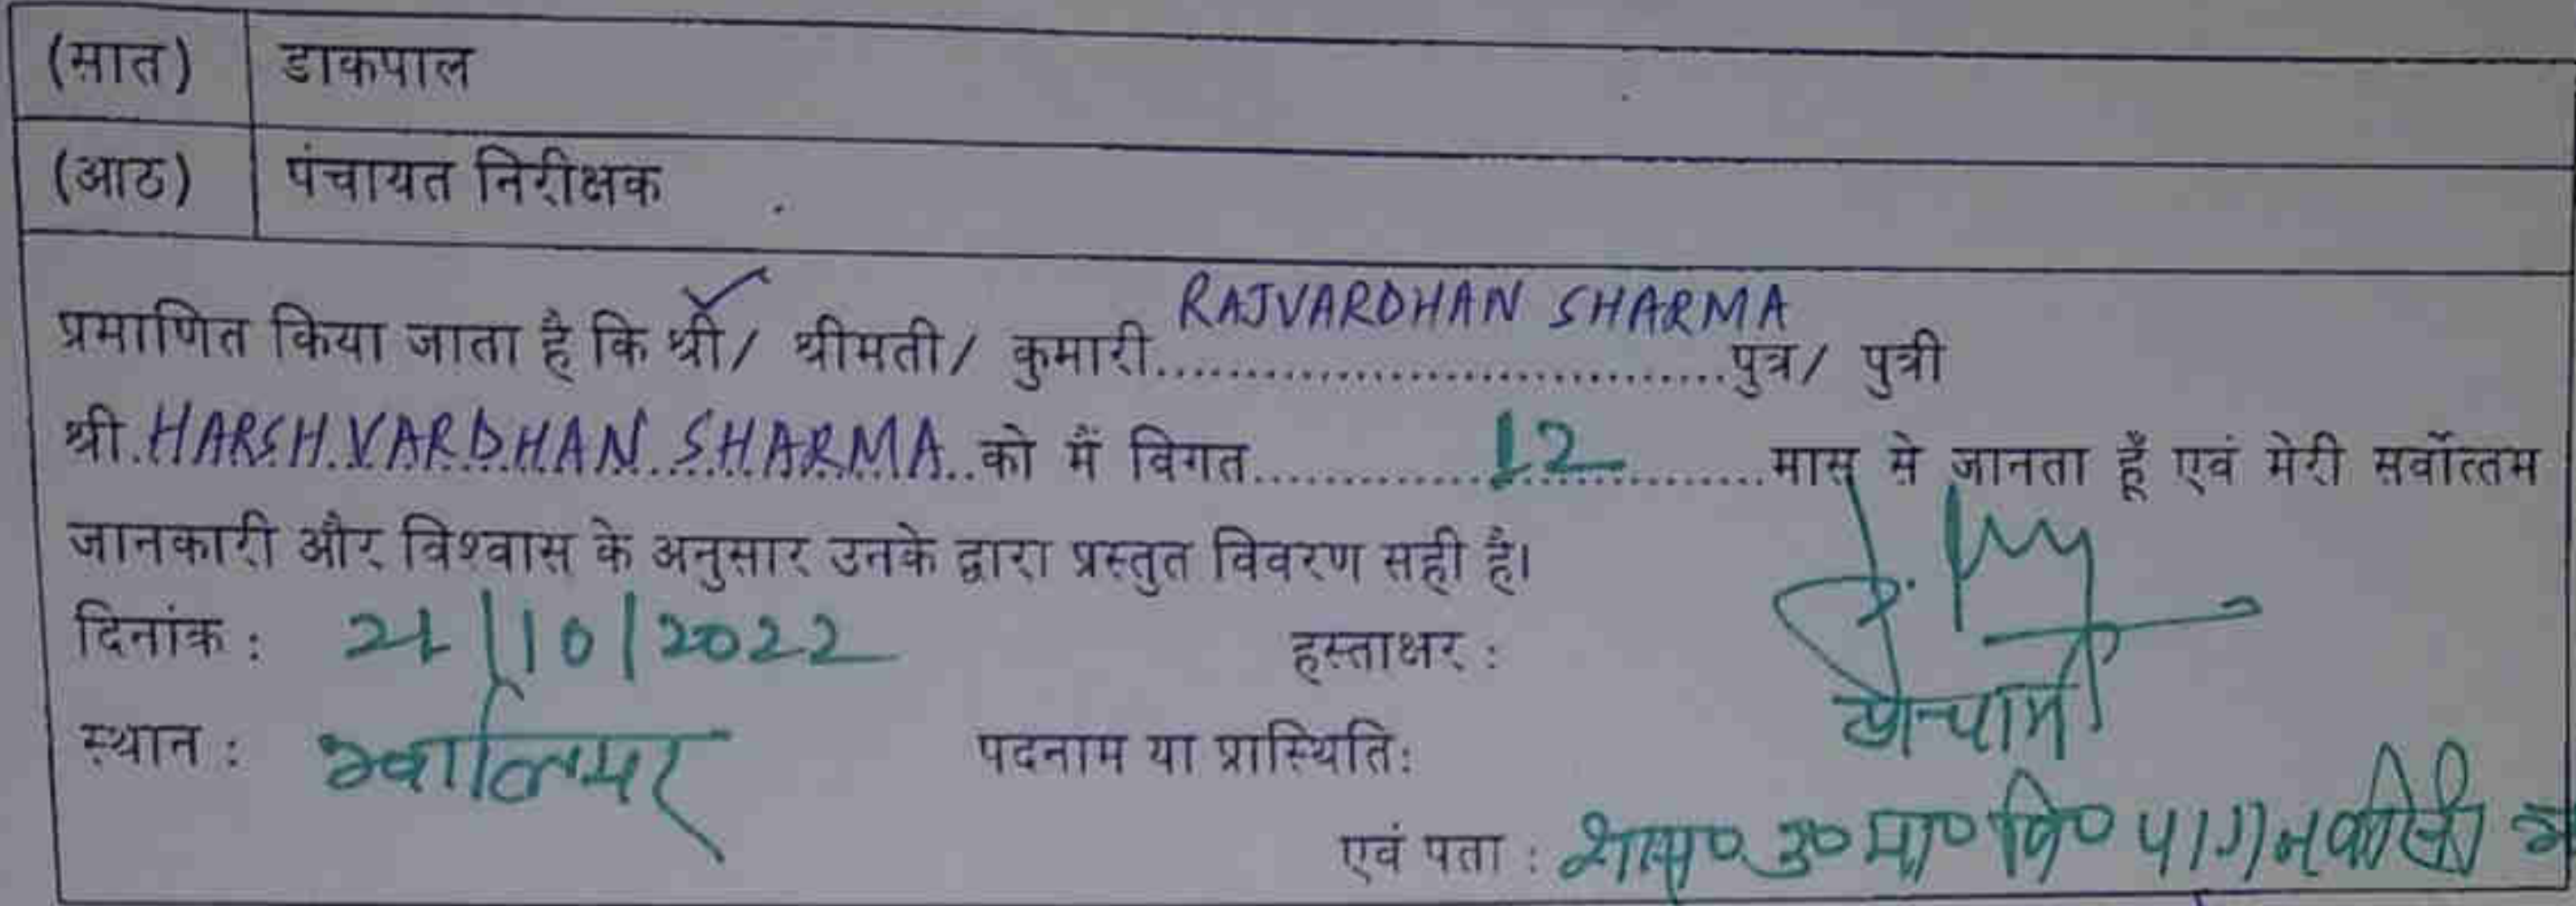 (सात) डाकपाल
(आठ) पंचायत निरीक्षक
प्रमाणित किया जाता है कि श्री/ श्रीमती/ कुमारी RAJVARDHAN SHARMA पुत्र/ पुत्री
श्री HARSH VARDHAN SHARMA को मैं विगत 12 मास से जानता हूँ एवं मेरी सर्वोत्तम
जानकारी और विश्वास के अनुसार उनके द्वारा प्रस्तुत विवरण सही है।
दिनांक: 21/10/2022 हस्ताक्षर:
स्थान: ग्वालियर पदनाम या प्रास्थिति: प्राचार्य
एवं पता: शास० उ० मा० वि०